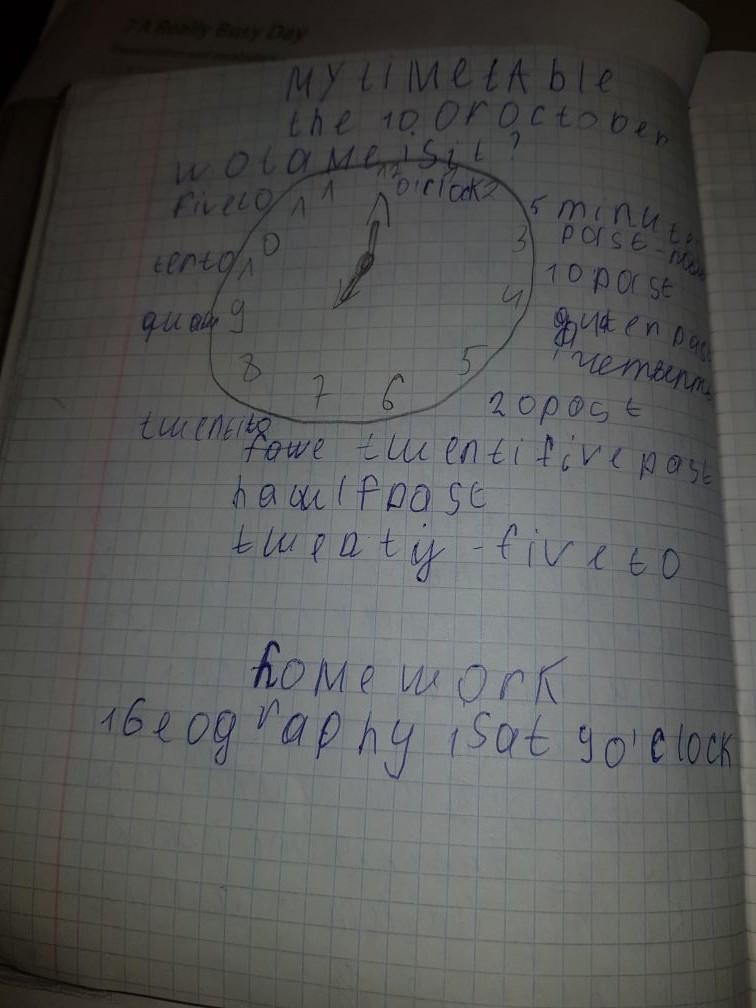 7 A Really Busy Day
My timetAble
the 10.Or October
wotameisit?
fiveto 11 12 o'clock 2 5 minut
past
tento 10 3
10 past
quar 9 4
past
8 5
7 6 20past
twentito
fowe twentifivepast
hawlfpast
tweaty-fiveto
homework
1Geography isat 9o'clock